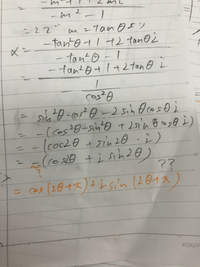 -m² + 1 + 2mi
-m² - 1
m = tanθ
α = -tan²θ + 1 + 2tanθi
-tan²θ - 1
= -tan²θ + 1 + 2tanθ i
1
cos²θ
= sin²θ - cos²θ - 2 sinθcosθ i
= -(cos²θ - sin²θ + 2sinθcosθ i)
= -(cos2θ + sin2θ · i)
= -(cos2θ + i sin2θ)
??
= cos(2θ+π) + i sin(2θ+π)